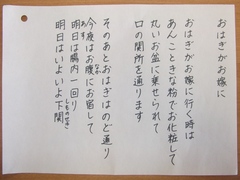 おはぎがお嫁に
おはぎがお嫁に行く時は
あんこときな粉でお化粧して
丸いお盆に乗せられて
口の関所を通ります
そのあとおはぎはのど通り
今夜はお腹にお宿して
明日は腸内一回り
明日はいよいよ下関
あす
しものせき